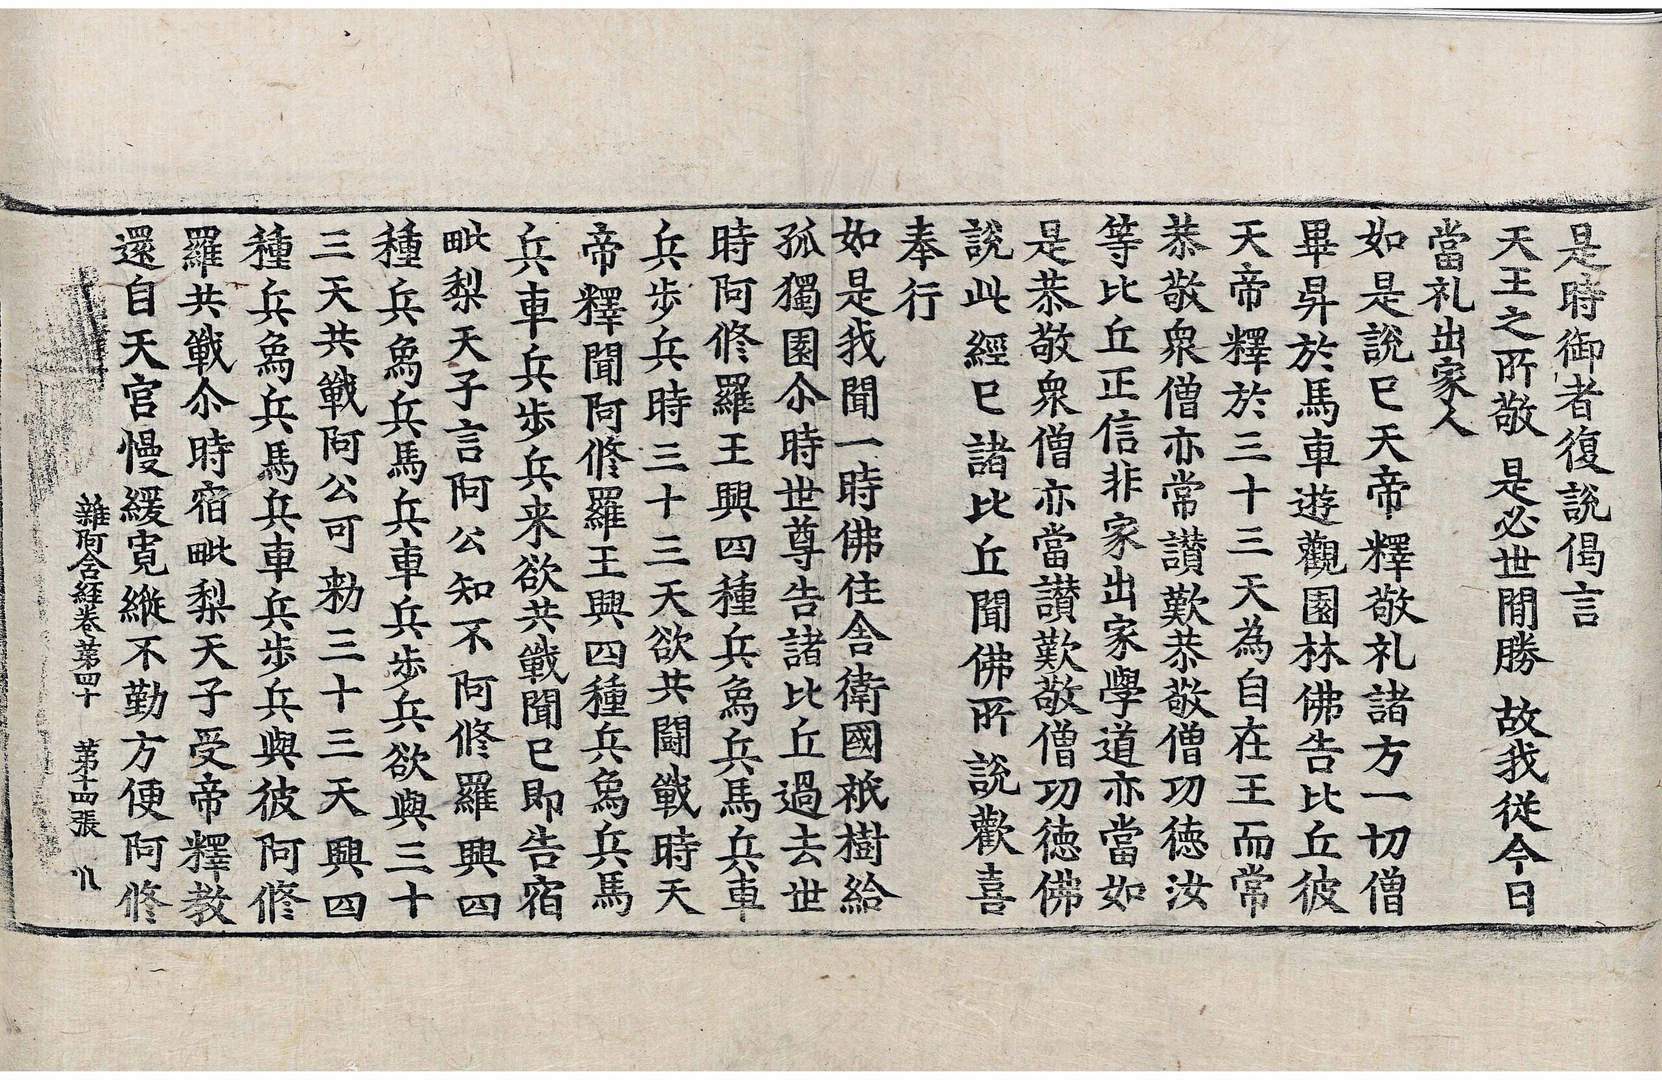 是時御者復說偈言
天王之所敬 是必世間勝 故我從今日
當礼出家人
如是說已天帝釋敬礼諸方一切僧
畢昇於馬車遊觀園林佛告比丘彼
天帝釋於三十三天為自在王而常
恭敬衆僧亦常讚歎恭敬僧功德汝
等比丘正信非家出家學道亦當如
是恭敬衆僧亦當讚歎敬僧功德佛
說此經已諸比丘聞佛所說歡喜
奉行
如是我聞一時佛住舍衛國祇樹給
孤獨園尒時世尊告諸比丘過去世
時阿修羅王興四種兵象兵馬兵車
兵步兵時三十三天欲共鬪戰時天
帝釋聞阿修羅王興四種兵象兵馬
兵車兵步兵来欲共戰聞已即告宿
毗梨天子言阿公知不阿修羅興四
種兵象兵馬兵車兵步兵欲與三十
三天共戰阿公可勑三十三天興四
種兵象兵馬兵車兵步兵與彼阿修
羅共戰尒時宿毗梨天子受帝釋教
還自天宮慢緩寬縱不勤方便阿修
雜阿含経卷第四十 第十四張